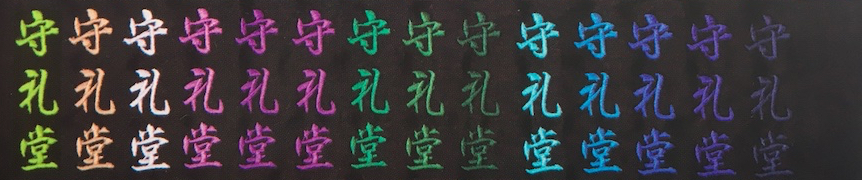 守礼堂
守礼堂
守礼堂
守礼堂
守礼堂
守礼堂
守礼堂
守礼堂
守礼堂
守礼堂
守礼堂
守礼堂
守礼堂
守礼堂